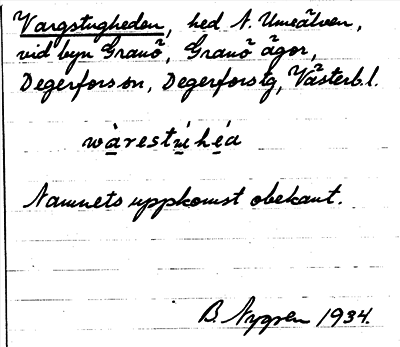 Vargstugheden, hed N. Umeälven,
vid byn Granö, Granö ägor,
Degerfors sn, Degerfors tg, Västerb. l.
wàrestúhéa
Namnets uppkomst obekant.
B. Nygren 1934.